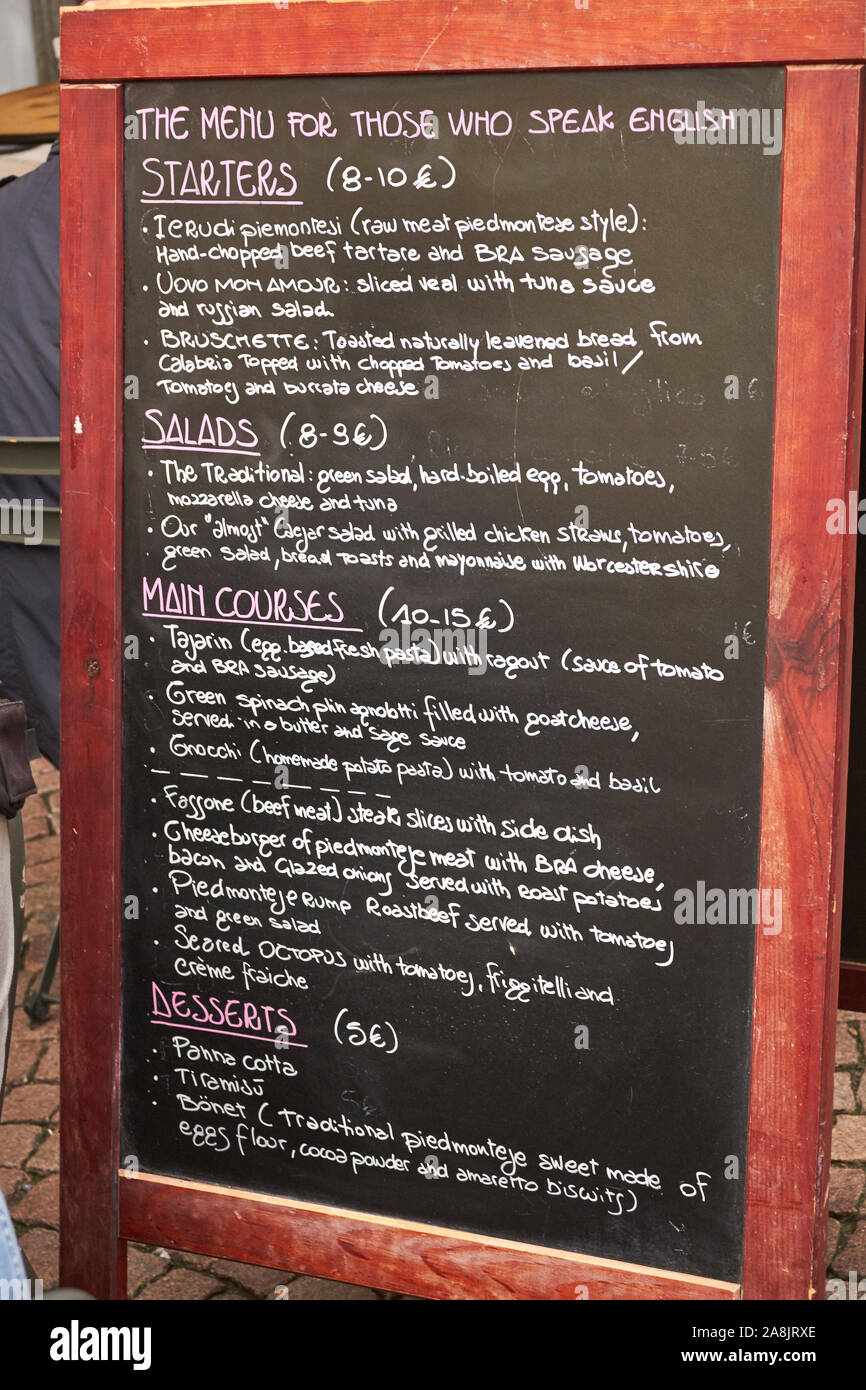 THE MENU FOR THOSE WHO SPEAK ENGLISH
STARTERS (8-10€)
· I CRUDI piemontesi (raw meat piedmontese style):
Hand-chopped beef tartare and BRA sausage
· UOVO MON AMOUR: sliced veal with tuna sauce
and russian salad
· BRUSCHETTE: Toasted naturally leavened bread from
Calabria Topped with chopped Tomatoes and basil/
Tomatoes and burrata cheese
SALADS (8-9€)
· The TRaditional: green salad, hard-boiled egg, tomatoes,
mozzarella cheese and tuna
· Our "almost" Caesar salad with grilled chicken STRAWS, tomatoes,
green salad, bread Toasts and mayonnaise with Worcestershire
MAIN COURSES (10-15€)
· Tajarin (egg based fresh pasta) with ragout (sauce of tomato
and BRA sausage)
· Green spinach plin agnolotti filled with goat cheese,
served in a butter and sage sauce
· Gnocchi (homemade potato pasta) with tomato and basil
· Fassone (beef meat) steak slices with side dish
· Cheeseburger of piedmontese meat with BRA cheese,
bacon and Glazed onions served with Roast potatoes
· Piedmontese Rump Roastbeef served with tomatoes
and green salad
· Seared OCTOPUS with tomatoes, friggitelli and
crème fraiche
DESSERTS (5€)
· Panna cotta
· Tiramisù
· Bönet (Traditional piedmontese sweet made of
eggs flour, cocoa powder and amaretto biscuits)
alamy
Image ID: 2A8JRXE
www.alamy.com